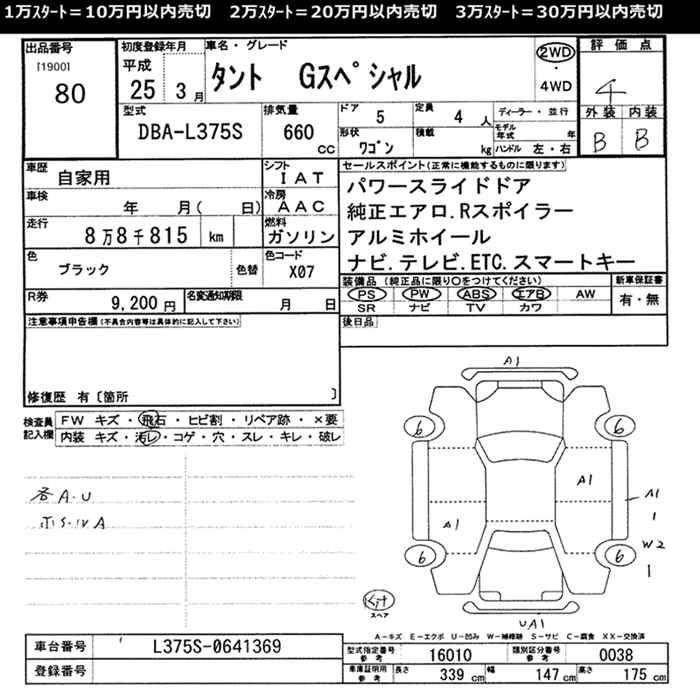 1万ｽﾀｰﾄ＝10万円以内売切　2万ｽﾀｰﾄ＝20万円以内売切　3万ｽﾀｰﾄ＝30万円以内売切
出品番号
[1900]
80
初度登録年月
平成
25 3月
車名・グレード
タント Gスペシャル
2WD
・
4WD
評価点
4
外装 内装
B B
型式
DBA-L375S
排気量
660
CC
ドア 5
定員 4 人
ディーラー・並行
モデル年式 年
形状 ワゴン
積載 kg
ハンドル 左・右
車歴
自家用
シフト
IAT
車検
年 月( 日)
冷房
AAC
走行
8万8千815 km
燃料
ガソリン
色
ブラック
色替
色コード
X07
R券
9,200円
名変通知期限
月 日
セールスポイント(正常に機能するものに限ります)
パワースライドドア
純正エアロ.Rスポイラー
アルミホイール
ナビ.テレビ.ETC.スマートキー
装備品 (純正品に限り〇をつけてください)
PS PW ABS エアB AW
SR ナビ TV カワ
新車保証書
有・無
後日品
注意事項申告欄(不具合内容等は具体的に記入して下さい)
修復歴 有〔箇所 〕
検査員記入欄
FW キズ・飛石・ヒビ割・リペア跡・×要
内装 キズ・汚レ・コゲ・穴・スレ・キレ・破レ
各A・U
A1
6 6
A1
A1
A1
1
W2
1
6 6
スペア
UA1
A－キズ E－エクボ U－凹み W－補修跡 S－サビ C－腐食 XX－交換済
車台番号
L375S-0641369
登録番号
型式指定番号
参考
16010
類別区分番号
参考
0038
車庫証明用
参考
長さ 339 cm
幅 147 cm
高さ 175 cm